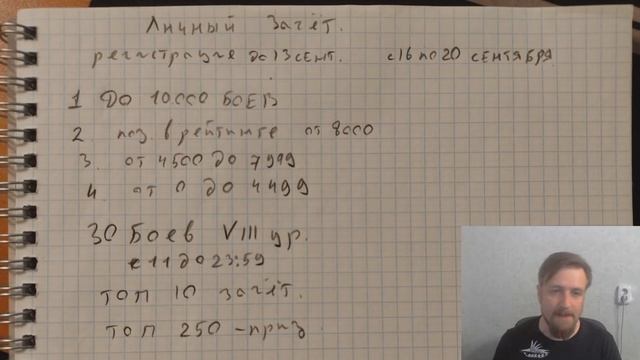 Личный Зачёт.
регистрация до 13 сент. с 16 по 20 сентября
1 До 10.000 боев
2 поз. в рейтинге от 8000
3. от 4500 до 7999
4. от 0 до 4499
30 Боев VIII ур.
с 11 до 23:59
топ 10 зачёт.
топ 250 - приз